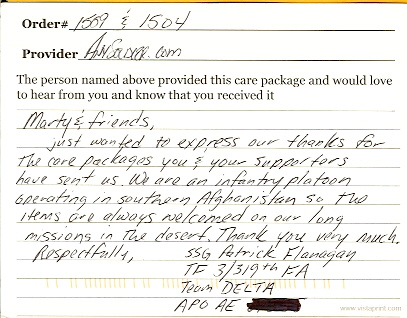 Order# 1559 & 1504
Provider AnySoldier.com
The person named above provided this care package and would love
to hear from you and know that you received it
Marty & friends,
just wanted to express our thanks for
the care packages you & your supporters
have sent us. We are an infantry platoon
operating in southern Afghanistan so the
items are always welcomed on our long
missions in the desert. Thank you very much.
Respectfully, SSG Patrick Flanagan
TF 3/319th FA
Team DELTA
APO AE
www.vistaprint.com